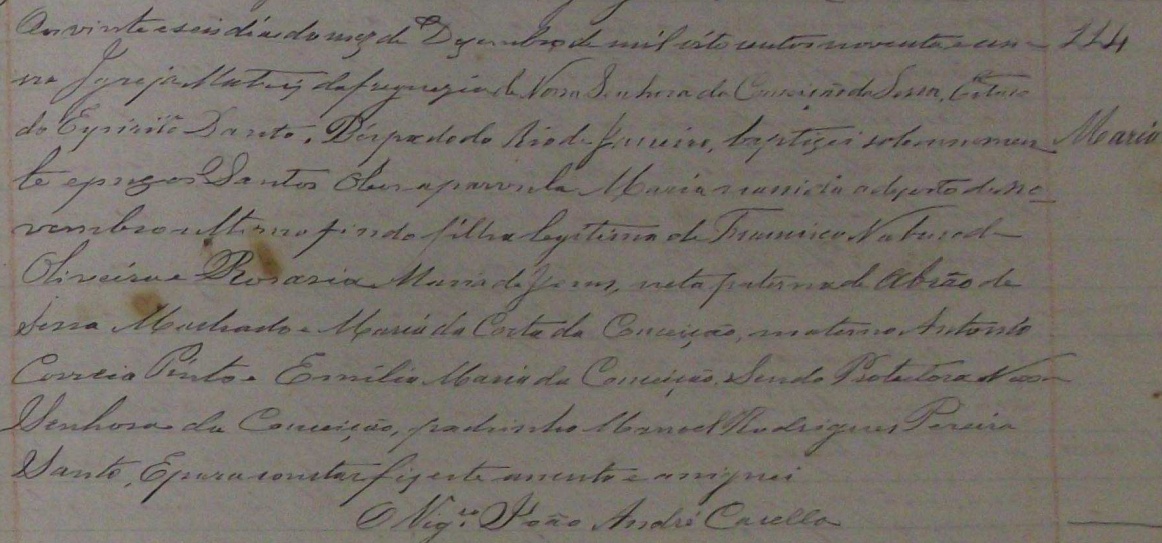 Aos vinte e seis dias do mez de Dezembro de mil oito centos noventa e cin- 114
na Igreja Matriz da freguezia de Nossa Senhora da Conceição da Serra, Estado
do Espirito Santo, Bispado do Rio de Janeiro, baptizei solemnemen Maria
te e puz os Santos Oleos a parvula Maria nascida a de no-
vembro ultimo findo filha legitima de Francisco de
Oliveira e Rosaria Maria de Jesus, neta paterna de Abrão de
Machado e Maria da Costa da Conceição, materna Antonio
Correia Pinto e Emilia Maria da Conceição. Sendo Protectora Nossa
Senhora da Conceição, padrinho Manoel Rodrigues Pereira
Santo. E para constar fiz este assento e assignei
O Vigro João André Casella